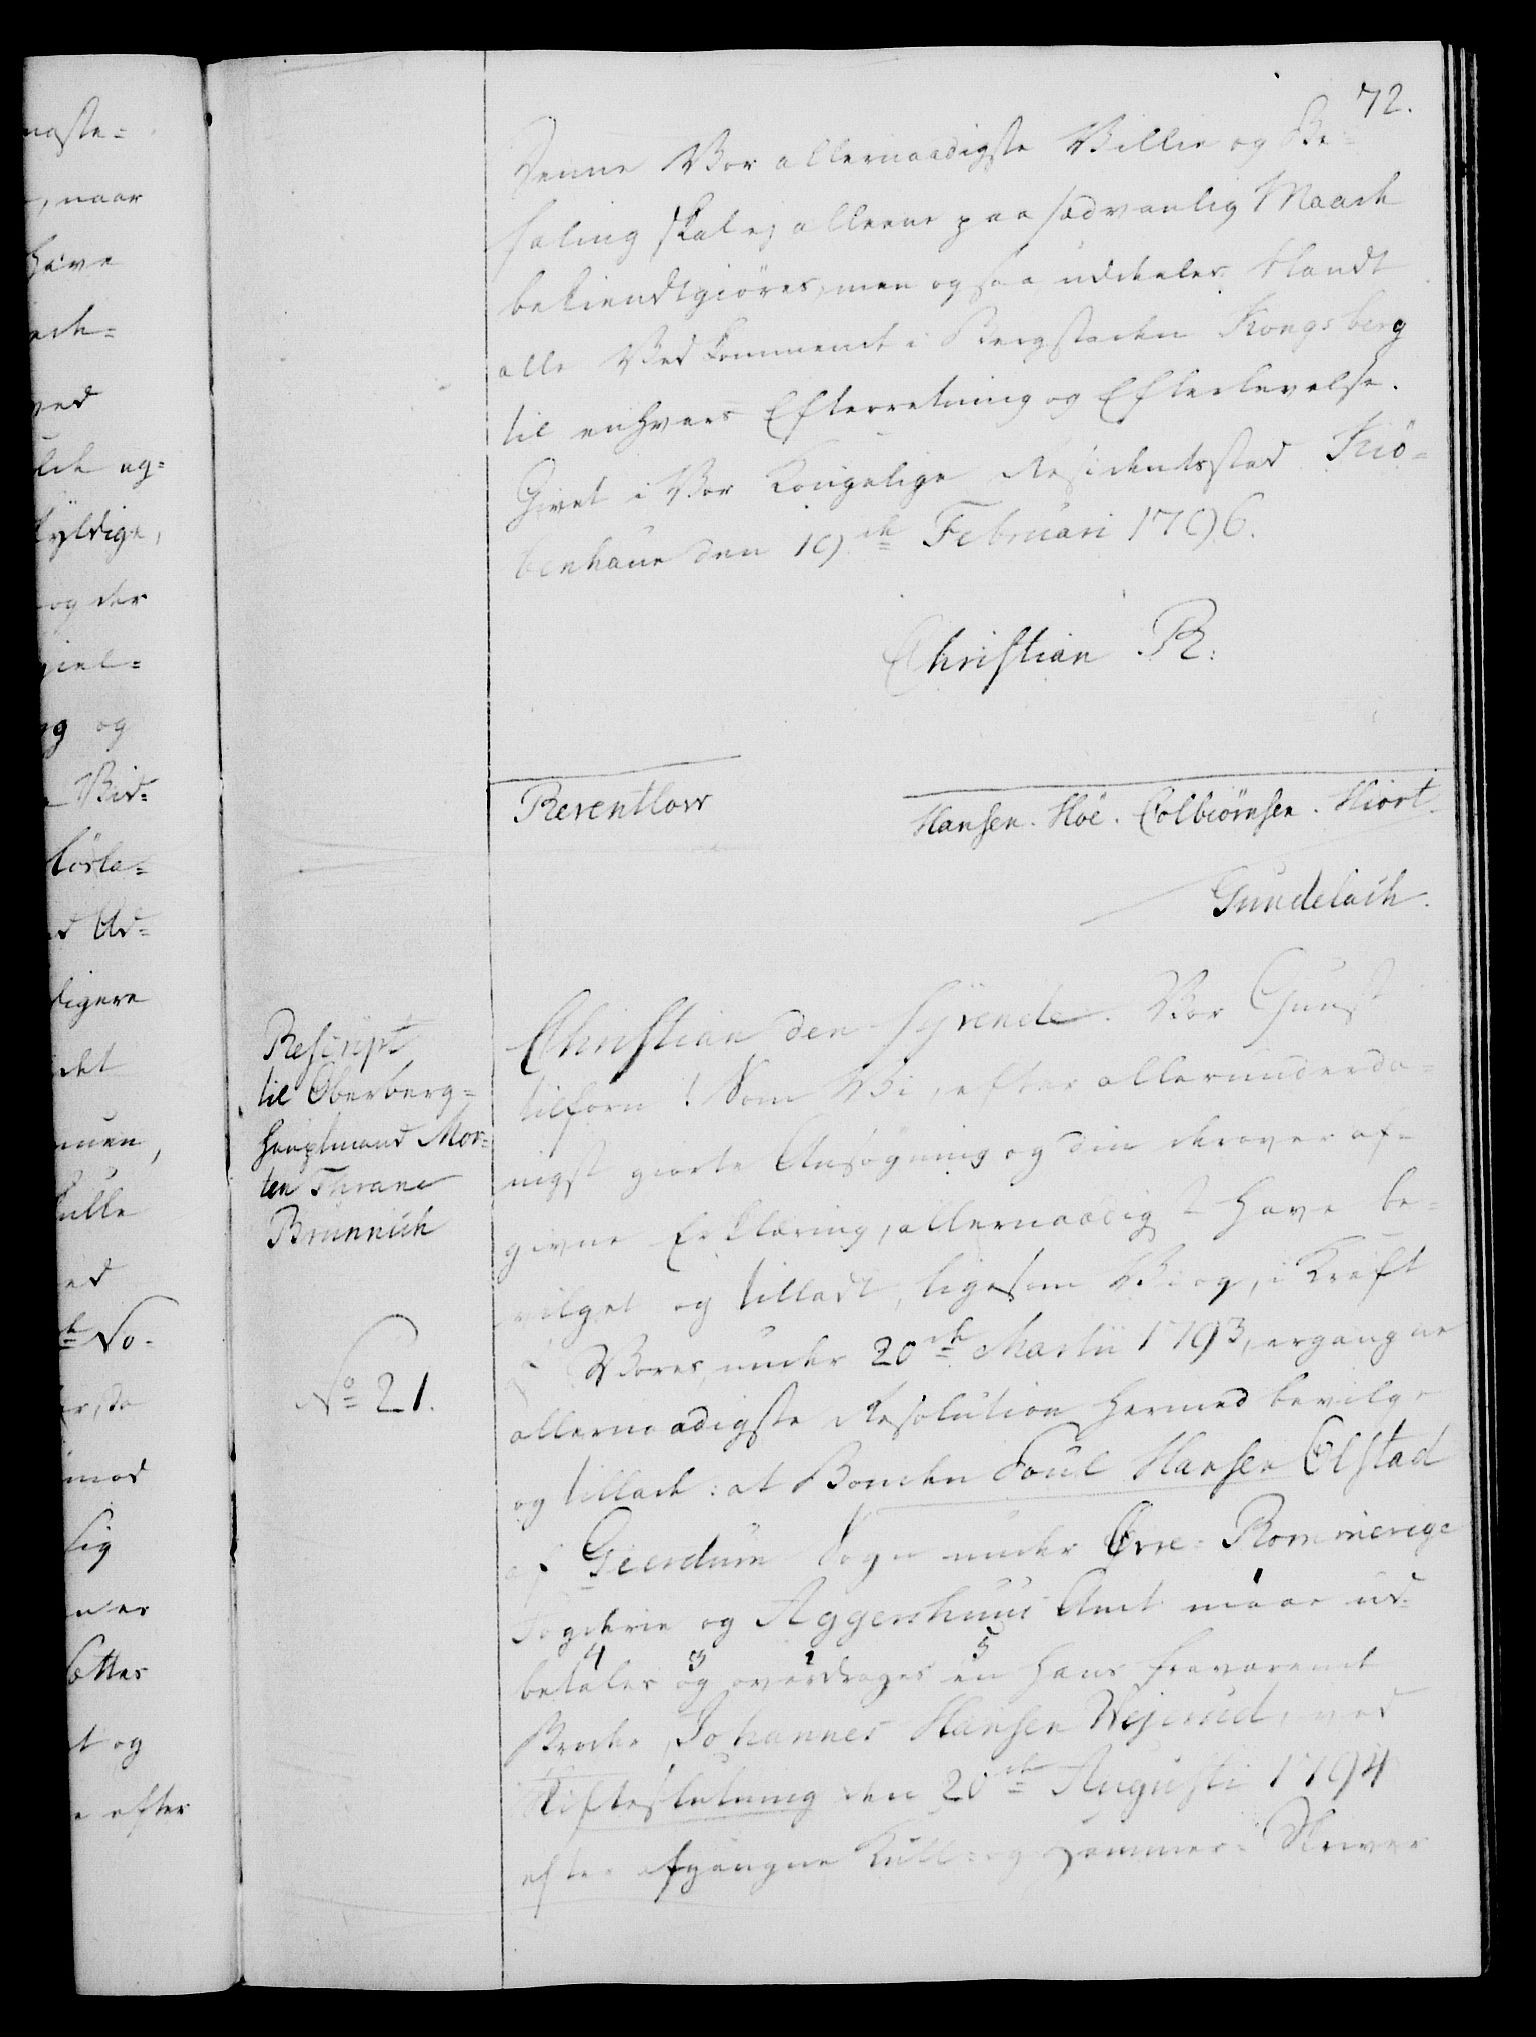 72.
Denne Vor allernaadigste Villie og Be-
faling skal ej alleene paa sædvanlig Maade
bekiendtgiøres, men ogsaa uddeeles blandt
alle Vedkommende i Bergstaden Kongsberg
til enhvers Efterretning og Efterlevelse.
Givet i Vor Kongelige Residentsstad Kiö-
benhavn den 19de Februari 1796.
Christian R:
Reventlow
Hansen. Höe. Colbiörnsen. Hiort.
Gundelach.
Rescript
til Oberberg=
hauptmand Mor=
ten Thrane
Brünnich
No 21.
Christian den Syvende. Vor Gunst
tilforn! Som Vi, efter allerunderda=
nigst giorte Ansøgning og din derover af=
givne Erklæring, allernaadigst have be=
vilget og tilladt, ligesom Vi og, i Kraft
af Vores, under 20de Martii 1793, ergangne
allernaadigste Resolution hermed bevilge
og tillade: at Bonden Poul Hansen Olstad
af Gierdrum Sogn under Øvre-Rommerige
Fogderie og Aggershuus Amt maae ud-
betales og overdrages en hans fraværende
Broder, Johannes Hansen Wejerud, ved
Skiftesslutning den 20de Augusti 1794
efter afgangne Kull- og Hammer-Skriver